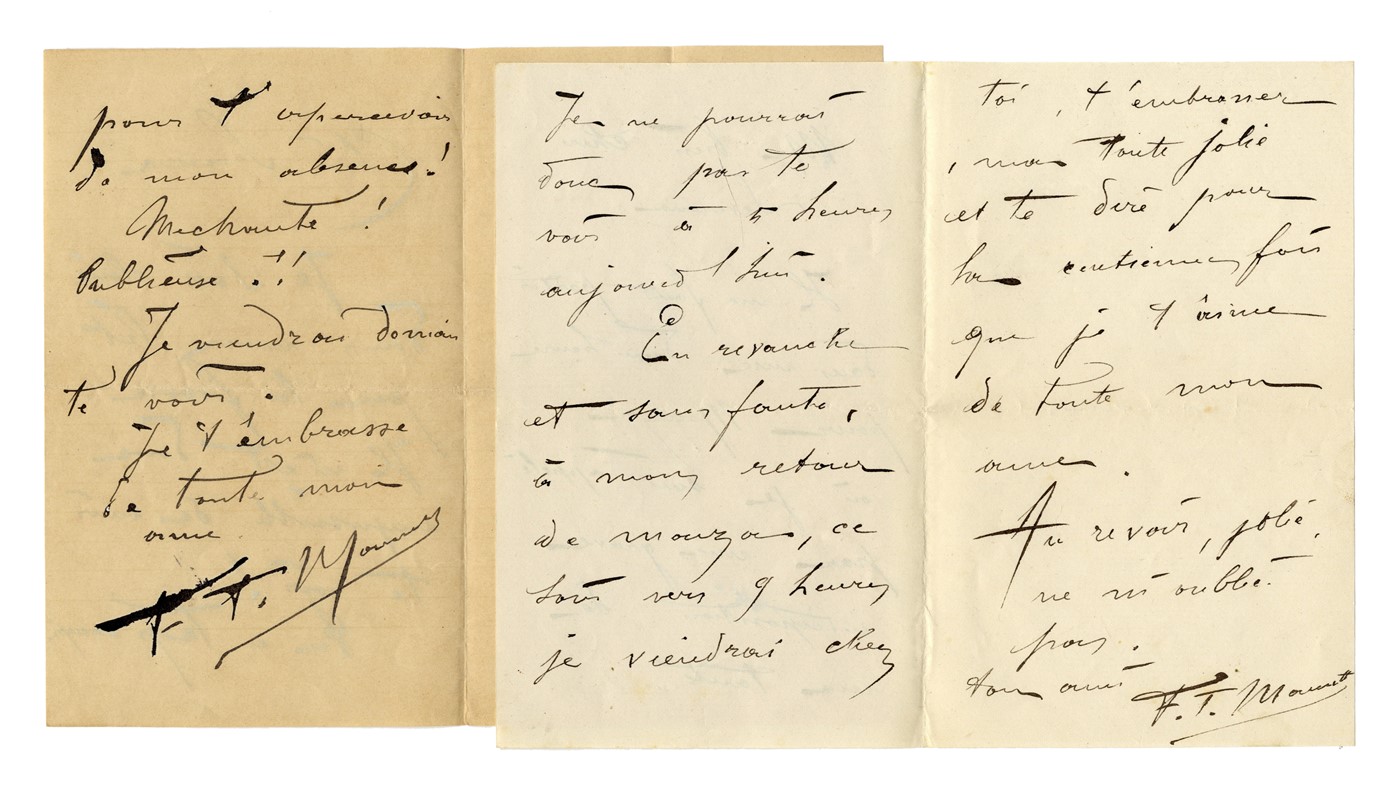 pour t'apercevoir
de mon absence!
Méchante !
Oublieuse !!
Je viendrai demain
te voir.
Je t'embrasse
de toute mon
ame
F. T. Monnet
Je ne pourrai
donc pas te
voir à 5 heures
aujourd'hui.
En revanche
et sans faute,
à mon retour
de mouzon, ce
soir vers 9 heures
je viendrai chez
toi, t'embrasser
, ma toute jolie
et te dire pour
la centieme fois
que je t'aime
de toute mon
ame.
Au revoir, jolie,
ne m'oublie
pas.
ton ami
F. T. Monnet